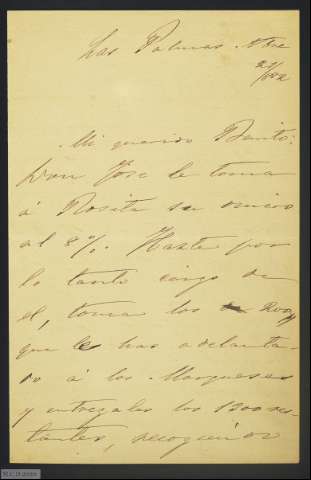 Las Palmas Nbre
22/02
Mi querido Benito:
Don José le toma
á Rosita su dinero
al 8%. Hazte por
lo tanto cargo de
el, toma los 200
que le has adelanta-
do á los Marqueses
y entregales los 1200 res-
tantes, recogiendo